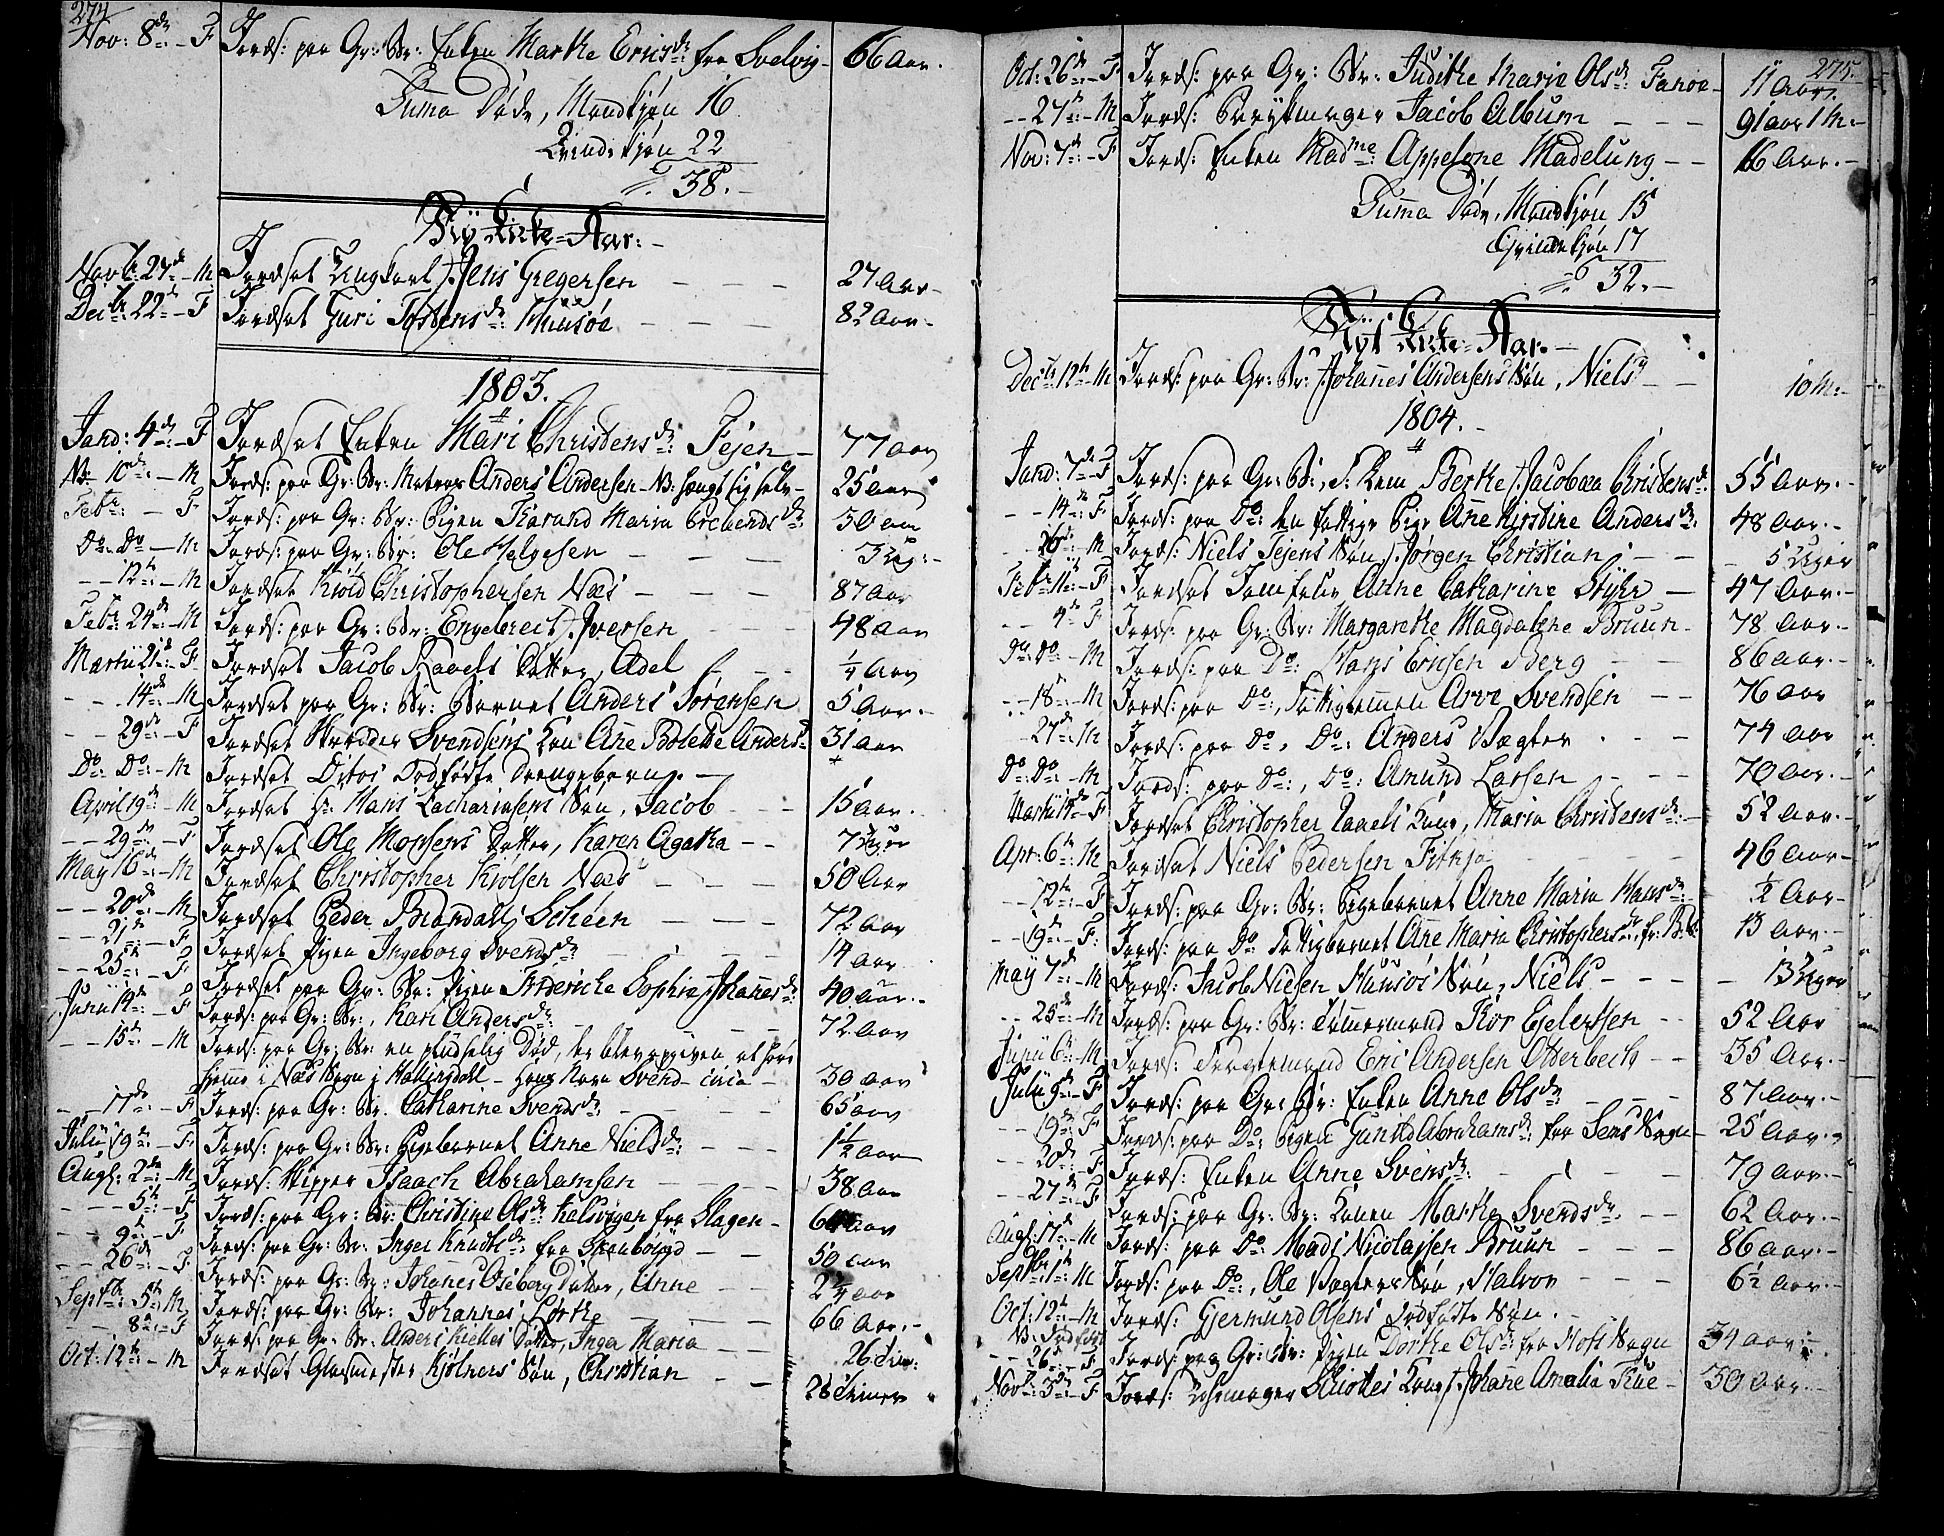 274
Nov: 8de - F Jords: paa Gr: Br: Enken Marthe Erics dr: fra Svelvig - 66 Aar.
Suma Døde, Mandkjøn 16
Qvindekjøn 22
38.
Nÿt Kirke-Aar.
Novbr: 27de - M Jordset Ungkarl Jens Gregersen 27 Aar
Decbr: 22de - F Jordset Guri Tostens dr: Huusøe 82 Aar
1803.
Jand: 4de - F Jordset Enken Mari Christens dr: Fejen 77 Aar
10de - M Jords: paa Gr: Br: Matros Anders Andersen - NB: hængt sig selv - 25 aar
Febr: - F Jords: paa Gr: Br: Pigen Karund Maria dr: 30 aar
Do Do - M Jords: paa Gr: Br: Ole Helgesen 3 Ug:
12te - M Jordset Kiøld Christophersen Næs 87 Aar
Febr: 24de M Jords: paa Gr: Br: Engebrect Iversen 48 Aar
Martii 21de F Jordset Jacob Tavels Datter, Adel 1/4 Aar
14de - M Jordset paa Gr: Br: Barnet Anders Sørensen 5 Aar
29de - F Jordset Skredder Svendsens Kone Ane Bolette Anders dr 31 aar
Do Do - M Jordset Ditos Dødfødte Drengebarn
April 19de - M Jordset Hr Hans Zachariasens Søn, Jacob 15 Aar
29de - F Jordset Ole Mossens Datter, Karen Agatha 7 Uger
May 16de - M Jordset Christopher Kiølsen Næs 50 Aar
20de - M Jordset Peder Brandall Scheen 72 aar
21de - F Jordset Pigen Ingeborg Svends dr 14 aar
25de - F Jordset paa Gr: Br: Pigen Friderike Sophie Johanes dr: 40 aar
Junii 14de - F Jords: paa Gr: Br:, Kari Anders dr: 72 Aar
15de - M Jords: paa Gr: Br: en pludselig Død, der blev opgiven at høre
hjeme i Næs Sogn i Hallingdall - hans Navn Svend - circa - 30 aar
17de - F Jords: paa Gr: Br. Catharine Svends dr: 65 aar
Julii 19de - F Jords: paa Gr: Br: Pigebarnet Anne Niels dr: 1 1/2 Aar
Augs: 2de - M Jords: Skipper Isaach Abrahamsen 38 Aar
5te - F Jords: paa Gr: Br: Christine Ols dr: Kalsvigen fra Slagen - 60 aar
9de - F Jords: paa Gr: Br: Inger Knuds dr: fra 50 aar
26de - F Jords: paa Gr: Br: Johanes Oseberg Datter, Anne 2 1/4 aar
Septbr: 5te M Jords: paa Gr: Br: Johannes Lorth 66 Aar
8de - F Jords: paa Gr: Br: Anders Kielles Datter, Inger Maria 26 Timer
Oct: 12te - M Jordset Glasmester Kjølners Søn, Christian 26 Timer
275.
Oct: 26de - F Jords: paa Gr: Br: Judithe Maria Ols dr: Fanøe - 11 Aar
27de - M Jords: Parykmager Jacob Album 91 aar 1 M:
Nov: 7de - F Jords: Enken Madme: Appelone Madelung 66 Aar.
Suma Døde, Mandkjøn 15
Qvindekjøn 17
32.
Nÿt Kirke-Aar.
Decbr 12te M Jords: paa Gr: Br: Johanes Andersens Søn, Niels 10 M:
1804.
Jand: 7de F Jords: paa Gr: Br:, Berthe Jacobæa Christens dr: 55 Aar.
14de F Jords: paa Do: den fattige Pige Ane Kirstine Anders dr: 48 Aar.
26de M Jords: Niels Fejens Søn, Jørgen Christian 5 Uger
Febr 11te - F Jordset Jomfrue Anne Catharine Stÿhr 47 Aar.
4de F Jords: paa Gr: Br: Margarethe Magdalene Bruun 78 Aar.
Do: Do - M Jords: paa Do: Hans Ericsen Berg 86 aar.
18de - M Jords: paa Do:, Fattigemen Arve Svendsen 76 Aar
27de M Jords: paa Do, Do: Anders Vægter 74 Aar
Do: Do - M Jords: paa Do:, Do: Amund Larsen 70 Aar.
Martii 14de - F Jordset Christopher Tavels Kone, Maria Christens dr: 52 Aar.
Apr: 6te M Jordset Niels Pedersen Fithja 46 Aar
12te - F Jords: paa Gr: Br: Pigebarnet Anne Maria Hans dr: 1/2 Aar
19de - F. Jords: paa Do Fattigbarnet Ane Maria Christophers dr: 13 aar.
May 7de - M Jords: Jacob Nielsen Huusøes Søn, Niels 13 Uger
25de - M Jords: paa Gr: Br: Tømermand Kor Ejelertsen 52 Aar
Junii 6te - M Jords: Eric Andersen Otterbech 35 Aar.
Julii 9de - F Jords: paa Gr: Br: Enken Anne Ols dr: 87 Aar.
19de F Jords: paa Do: Pigen Gunild Abrahams dr: fra Sems Sogn 25 Aar.
20de - F Jords: Enken Anne Svens dr: 79 aar.
27de - F Jords: paa Gr: Br: Konen Marthe Svends dr. 62 Aar.
Augs: 17de M Jords: paa Do: Mads Nicolajsen Bruun 86 aar.
Septbr 1te M Jords: paa Do:, Ole Vægters Søn, Halvor 6 1/2 Aar.
Oct: 12te - M Jords: Gjermund Olsens Dødfødte Søn.
NB: Dødfødt
26de - F Jords: paa Gr: Br: Pigen Dorthe Ols dr: fra Sogn 34 aar
Novbr: 3de F Jords: Schiøttes Kone, Johane Amalia Rue 30 aar.